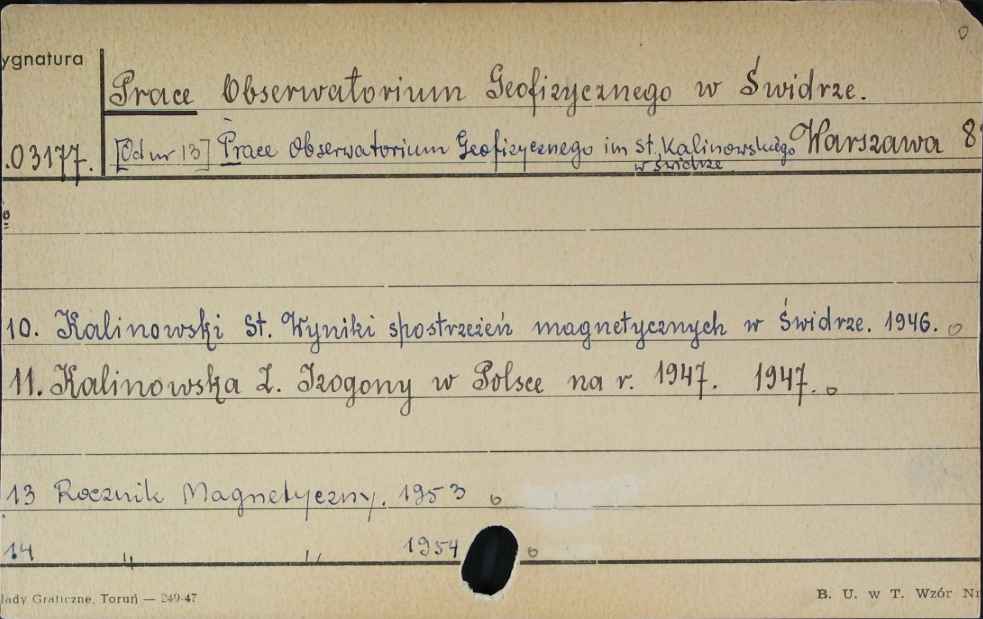 ygnatura
Prace Obserwatorium Geofizycznego w Świdrze.
.03177. [Od nr 13] Prace Obserwatorium Geofizycznego im St. Kalinowskiego Warszawa 8
w Świdrze
10. Kalinowski St. Wyniki spostrzeżeń magnetycznych w Świdrze. 1946.
11. Kalinowska Z. Izogony w Polsce na r. 1947. 1947.
13 Rocznik Magnetyczny. 1953
14 " " 1954
łady Graficzne, Toruń — 249-47
B. U. w T. Wzór Nr